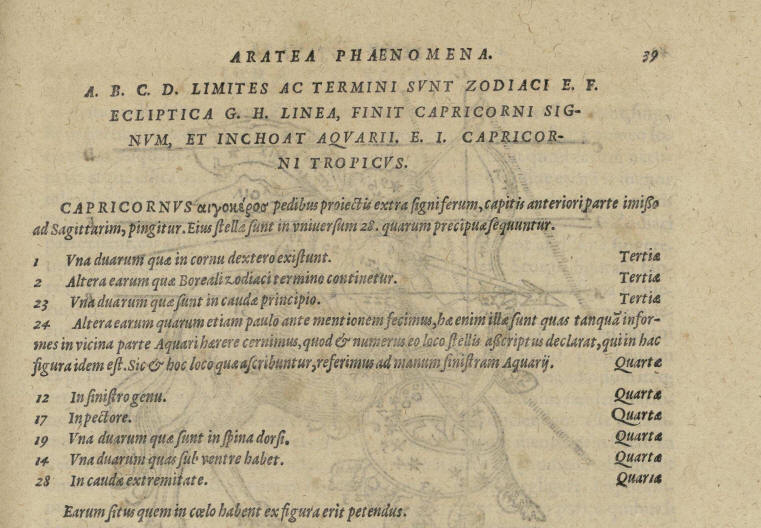 ARATEA PHAENOMENA. 39
A. B. C. D. LIMITES AC TERMINI SVNT ZODIACI E. F.
ECLIPTICA G. H. LINEA, FINIT CAPRICORNI SIG-
NVM, ET INCHOAT AQVARII. E. I. CAPRICOR-
NI TROPICVS.
CAPRICORNVS αιγοκέρος pedibus proiectis extra signiferum, capitis anteriori parte imißo
ad Sagittarim, pingitur. Eius stellæ sunt in vniuersum 28. quarum precipuæ sequuntur.
1 Vna duarum quæ in cornu dextero existunt. Tertiæ
2 Altera earum quæ Boreali zodiaci termino continetur. Tertiæ
23 Vna duarum quæ sunt in caudæ principio. Tertiæ
24 Altera earum quarum etiam paulo ante mentionem fecimus, hæ enim illæ sunt quas tanquã infor-
mes in vicina parte Aquari hærere cernimus, quod & numerus eo loco stellis aßcriptus declarat, qui in hac
figura idem est. Sic & hoc loco quæ ascribuntur, referimus ad manum sinistram Aquarij. Quartæ
12 In sinistro genu. Quartæ
17 In pectore. Quartæ
19 Vna duarum quæ sunt in spina dorsi. Quartæ
14 Vna duarum quas sub ventre habet. Quartæ
28 In caudæ extremitate. Quartæ
Earum situs quem in cœlo habent ex figura erit petendus.